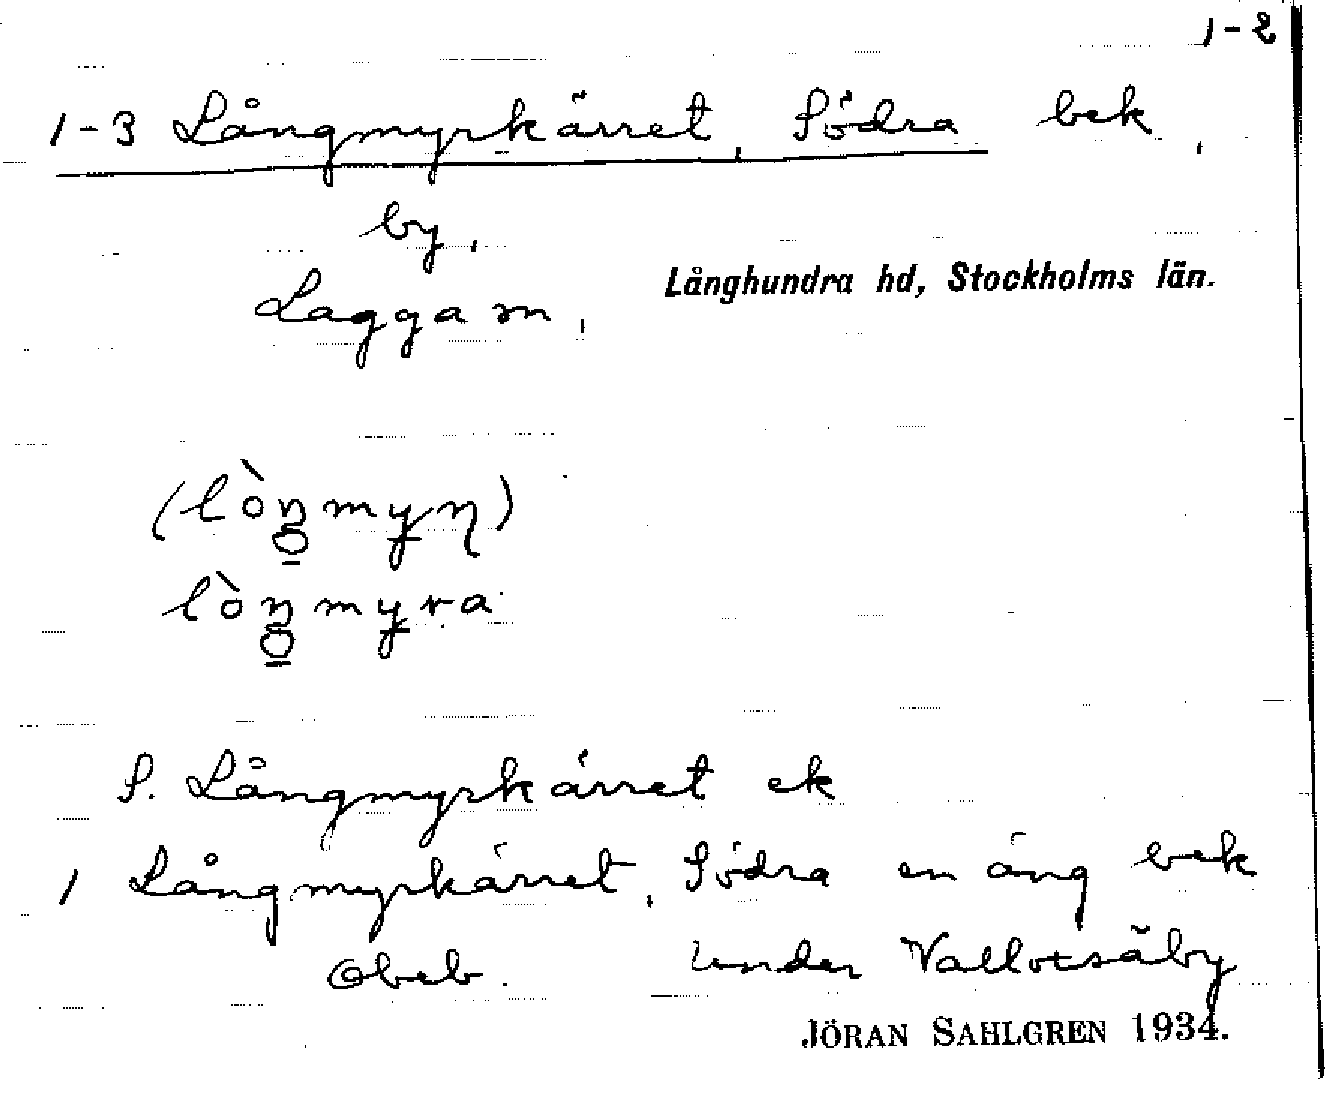 1-2
1-3 Långmyrkärret, Södra bek,
by,
Laggam,
Långhundra hd, Stockholms län.
(lòŋmyn)
lòŋmyra
S. Långmyrkärret ek
1 Långmyrkärret, Södra en äng bek
Obeb. under Vallotsäby
JÖRAN SAHLGREN 1934.